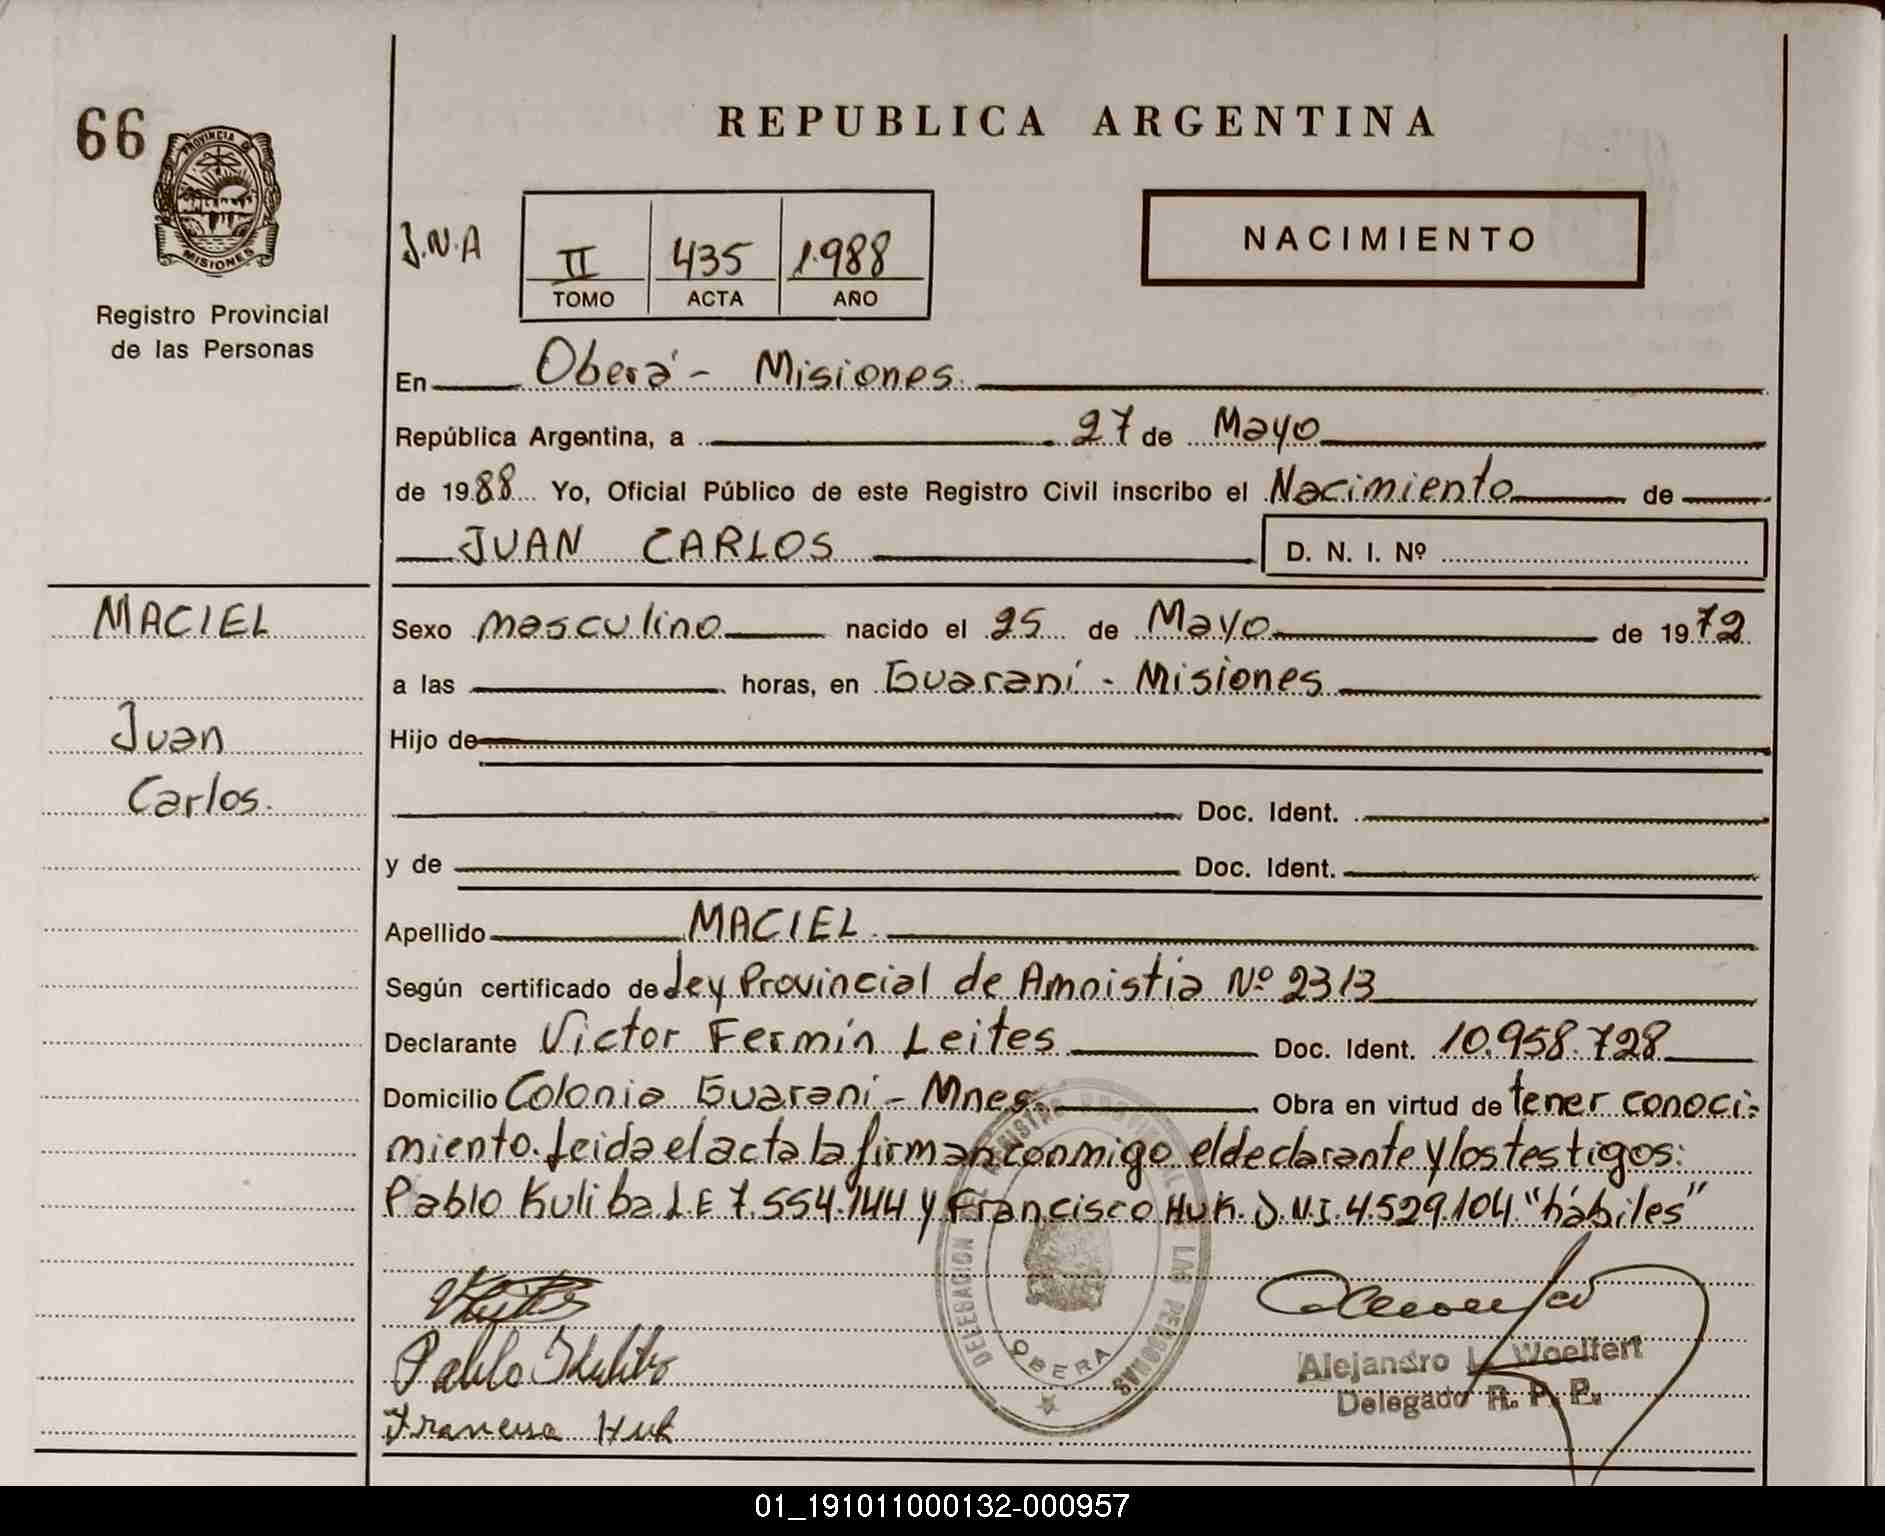 66
PROVINCIA DE
MISIONES
Registro Provincial
de las Personas
REPUBLICA ARGENTINA
J.N.A
II 435 1.988
TOMO ACTA AÑO
NACIMIENTO
En Oberá - Misiones
República Argentina, a 27 de Mayo
de 1988 Yo, Oficial Público de este Registro Civil inscribo el Nacimiento de
JUAN CARLOS
D. N. I. Nº
MACIEL
Juan
Carlos.
Sexo masculino nacido el 25 de Mayo de 1972
a las horas, en Guaraní - Misiones
Hijo de
Doc. Ident.
y de Doc. Ident.
Apellido MACIEL
Según certificado de Ley Provincial de Amnistia Nº 2313
Declarante Victor Fermín Leites Doc. Ident. 10.958.728
Domicilio Colonia Guaraní - Mnes. Obra en virtud de tener conoci-
miento. Leida el acta la firman conmigo el declarante y los testigos:
Pablo Kuliba L.E 7.554.744 y Francisco Huk. D.N.I. 4.529.104 "hábiles"
DELEGACION DEL REGISTRO PROVINCIAL DE LAS PERSONAS
OBERA
Pablo Kuliba
Francisco Huk
Alejandro L. Woelfert
Delegado R. P. P.
01_191011000132-000957